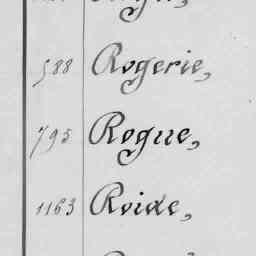 588 Rogerie,
795 Rogue,
1163 Roide,